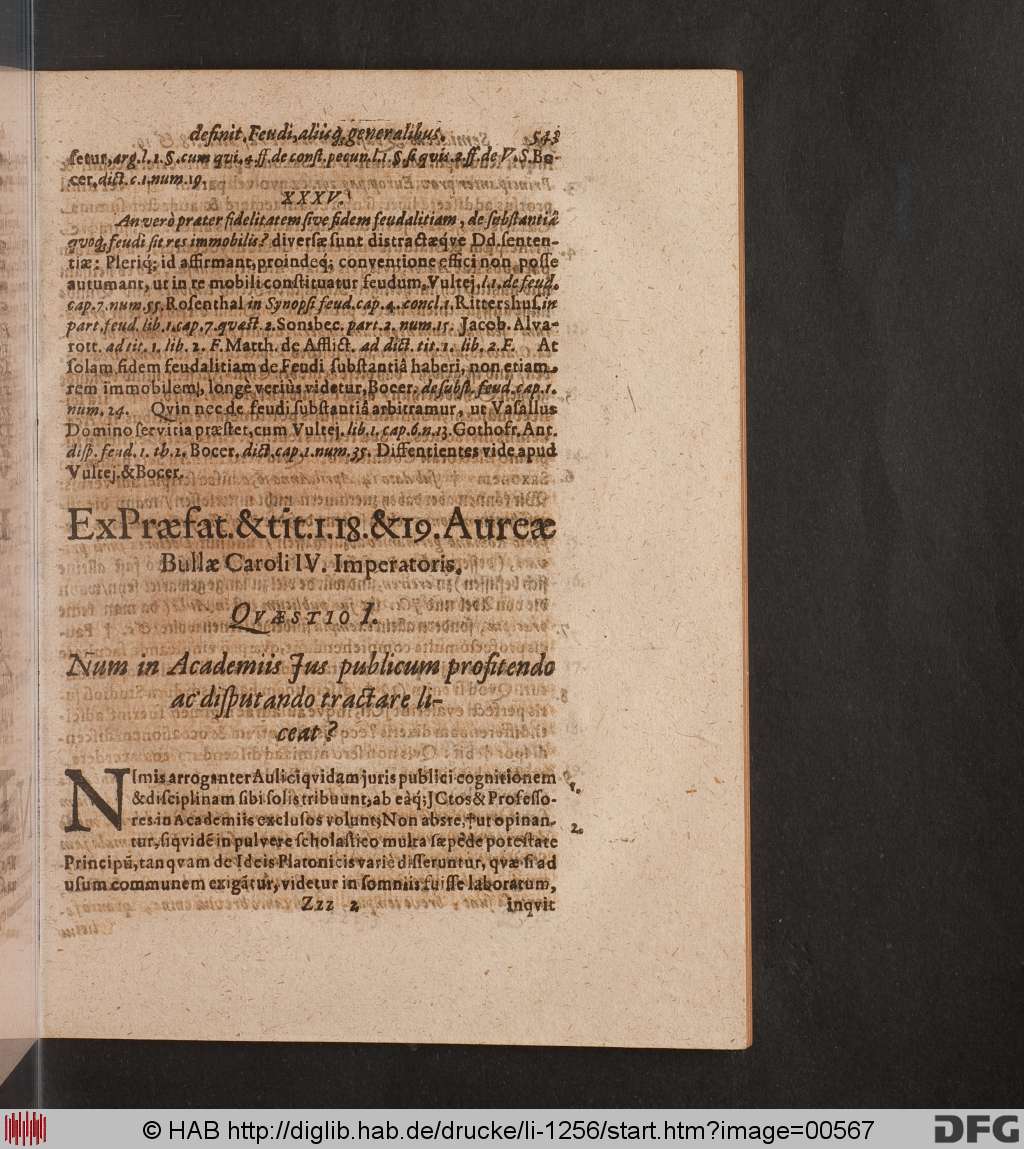 definit. Feudi, aliisq́, generalibus. 543
ſetur, arg. l. 1. §. cum qui. 4. ff. de conſt. pecun. l. 1. §. ſi quis. 2. ff. de V. S. Bo-
cer. dict. c. 1. num. 19.
XXXV.
An verò præter fidelitatem ſive fidem feudalitiam, de ſubſtantiâ
quoq́, feudi ſit res immobilis? diverſæ ſunt distractæq́ve Dd. ſenten-
tiæ: Pleriq́; id affirmant, proindeq́; conventione effici non poſſe
autumant, ut in re mobili conſtituatur feudum, Vultej. l. 1. de feud.
cap. 7. num. 55. Roſenthal in Synopſi feud. cap. 4. concl. 1. Rittershuſ. in
part. feud. lib. 1. cap. 7. quæst. 2. Sonsbec. part. 2. num. 15. Jacob. Alva-
rott. ad tit. 1. lib. 2. F. Matth. de Afflict. ad dict. tit. 1. lib. 2. F. At
ſolam fidem feudalitiam de Feudi ſubſtantiâ haberi, non etiam
rem immobilem, longè veriùs videtur, Bocer. de ſubſt. feud. cap. 1.
num. 24. Qvin nec de feudi ſubſtantiâ arbitramur, ut Vaſallus
Domino ſervitia præſtet, cum Vultej. lib. 1. cap. 6. n. 13. Gothofr. Ant.
diſp. feud. 1. th. 2. Bocer. dict. cap. 1. num. 35. Diſſentientes vide apud
Vultej. & Bocer.
Ex Præfat. & tit. 1. 18. & 19. Aureæ
Bullæ Caroli IV. Imperatoris.
QVÆSTIO I.
Num in Academiis Jus publicum profitendo
ac diſputando tractare li-
ceat?
NImis arroganter Aulici qvidam juris publici cognitionem 1.
& diſciplinam ſibi ſolis tribuunt, ab eàq́; JCtos & Profeſſo-
res in Academiis excluſos volunt; Non abs re, † ut opinan- 2.
tur, ſiqvidē in pulvere ſcholaſtico multa ſæpè de poteſtate
Principū, tanqvam de Ideis Platonicis variè diſſeruntur, qvæ ſi ad
uſum communem exigātur, videtur in ſomniis fuiſſe laboratum,
Zzz 2 inqvit
© HAB http://diglib.hab.de/drucke/li-1256/start.htm?image=00567
DFG